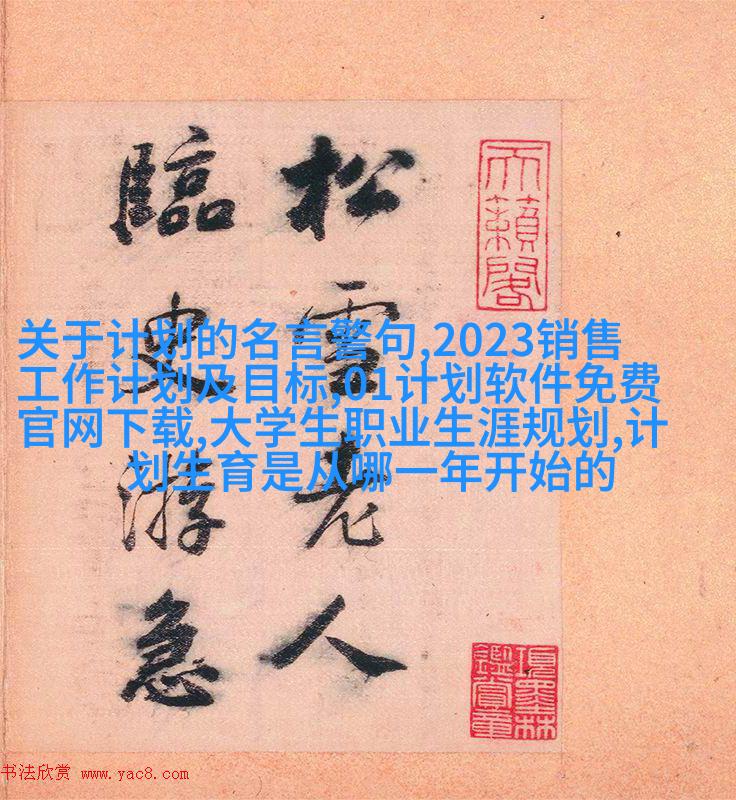 松雪老人
臨史游急
天籟閣
項墨林
鑑賞章
关于计划的名言警句,2023销售
工作计划及目标,01计划软件免费
官网下载,大学生职业生涯规划,计
划生育是从哪一年开始的
书法欣赏 www.yac8.com